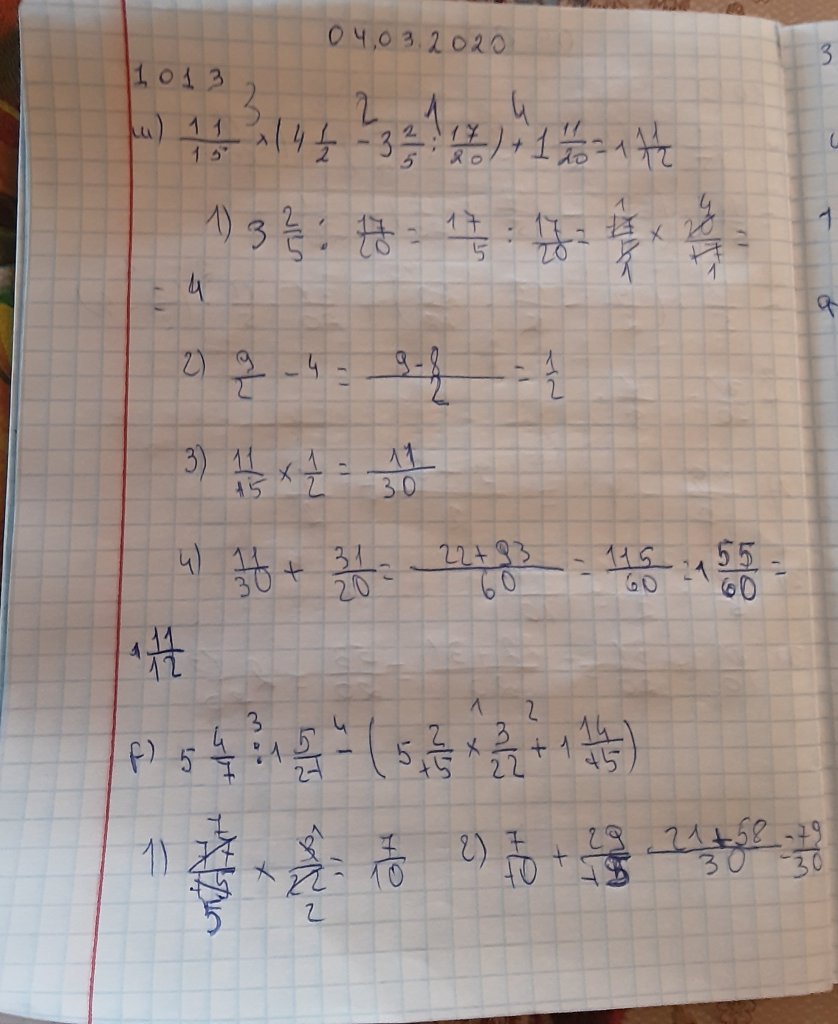 04.03.2020
1013
3 2 1 4
ա) 11/15 × (4 1/2 - 3 2/5 : 17/20) + 1 11/20 = 1 11/12
1) 3 2/5 : 17/20 = 17/5 : 17/20 = 17/5 × 20/17 =
= 4
2) 9/2 - 4 = 9-8/2 = 1/2
3) 11/15 × 1/2 = 11/30
4) 11/30 + 31/20 = 22+93/60 = 115/60 = 1 55/60 =
1 11/12
3 4 1 2
բ) 5 4/7 : 1 5/21 - (5 2/15 × 3/22 + 1 14/15)
1) 77/15 × 3/22 = 7/10 2) 7/10 + 29/15 = 21+58/30 = 79/30